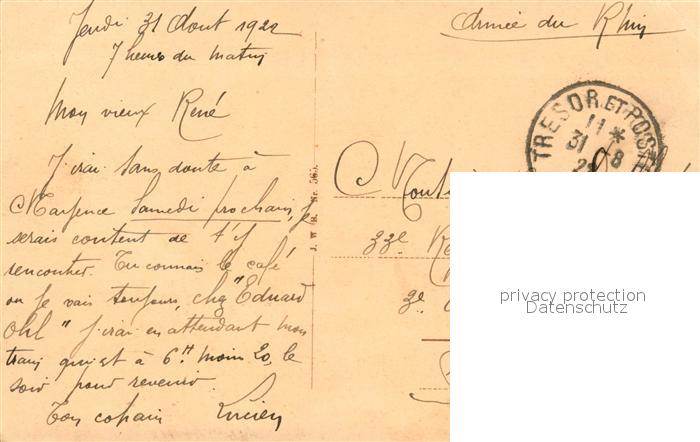 Jeudi 31 Aout 1922
7 heures du matin
Mon vieux René
J'irai sans doute à
Mayence samedi prochain, je
serais content de t'y
rencontrer. Tu connais le café
ou je vais toujours, chez "Eduard
Ohl" j'irai en attendant mon
train qui est à 6H moin 20, le
soir pour revenir.
Ton copain Lucien
J. W. B. Nr. 565.
Armée du Rhin
TRESOR ET POSTE
11 *
31 8
22
33e
3e
privacy protection
Datenschutz